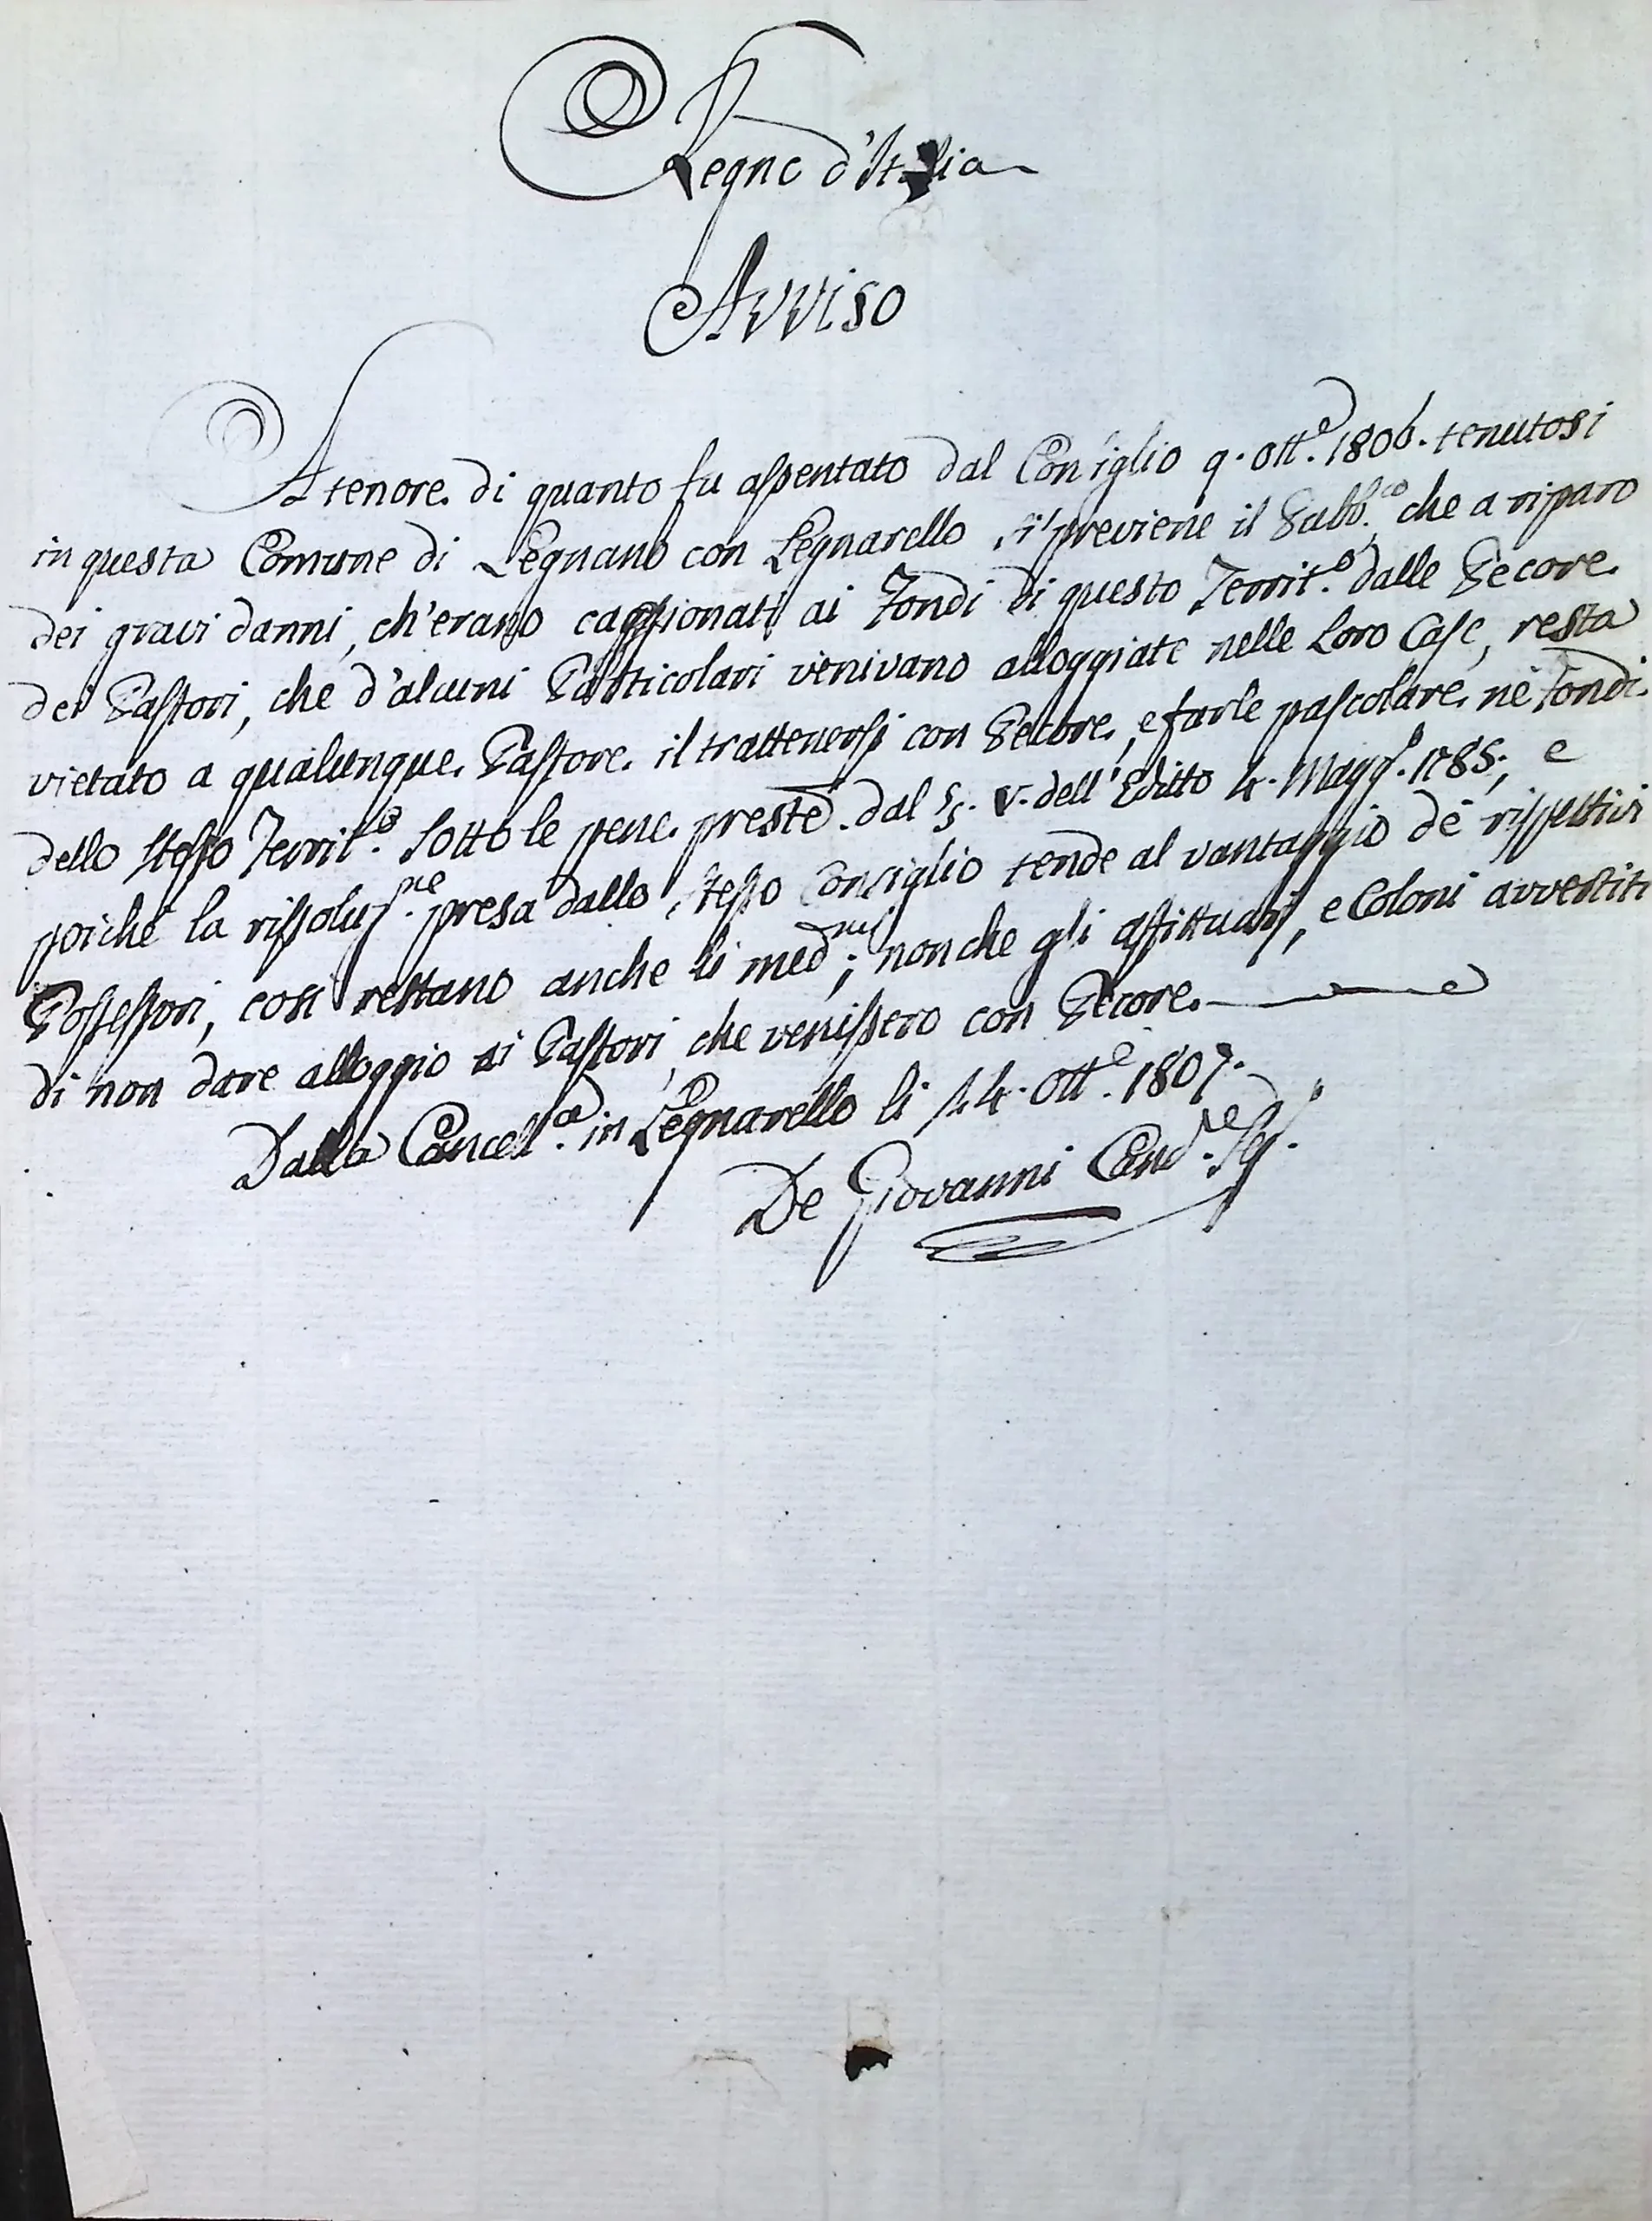 Regno d'Italia
Avviso
A tenore di quanto fu assentato dal Consiglio 9. ott.e 1806. tenutosi
in questa Comune di Legnano con Legnarello, si previene il Pubb.co che a riparo
dei gravi danni, ch'erano caggionati ai Fondi di questo Territ.o dalle Pecore
dei Pastori, che d'alcuni Particolari venivano alloggiate nelle Loro Case, resta
vietato a qualunque Pastore il trattenersi con Pecore, e farle pascolare ne' Fondi
dello stesso Territ.o sotto le pene preste dal §. V. dell'Editto 4. Magg.o 1785; e
poiché la rissoluz.ne presa dallo stesso Consiglio tende al vantaggio de' rispettivi
Possessori, così restano anche li med.mi; non che gli affittuarj, e Coloni avvertiti
di non dare alloggio ai Pastori, che venissero con Pecore.
Dalla Cancell.a in Legnarello li 14. Ott.e 1807.
De Giovanni Canc.re Seg.